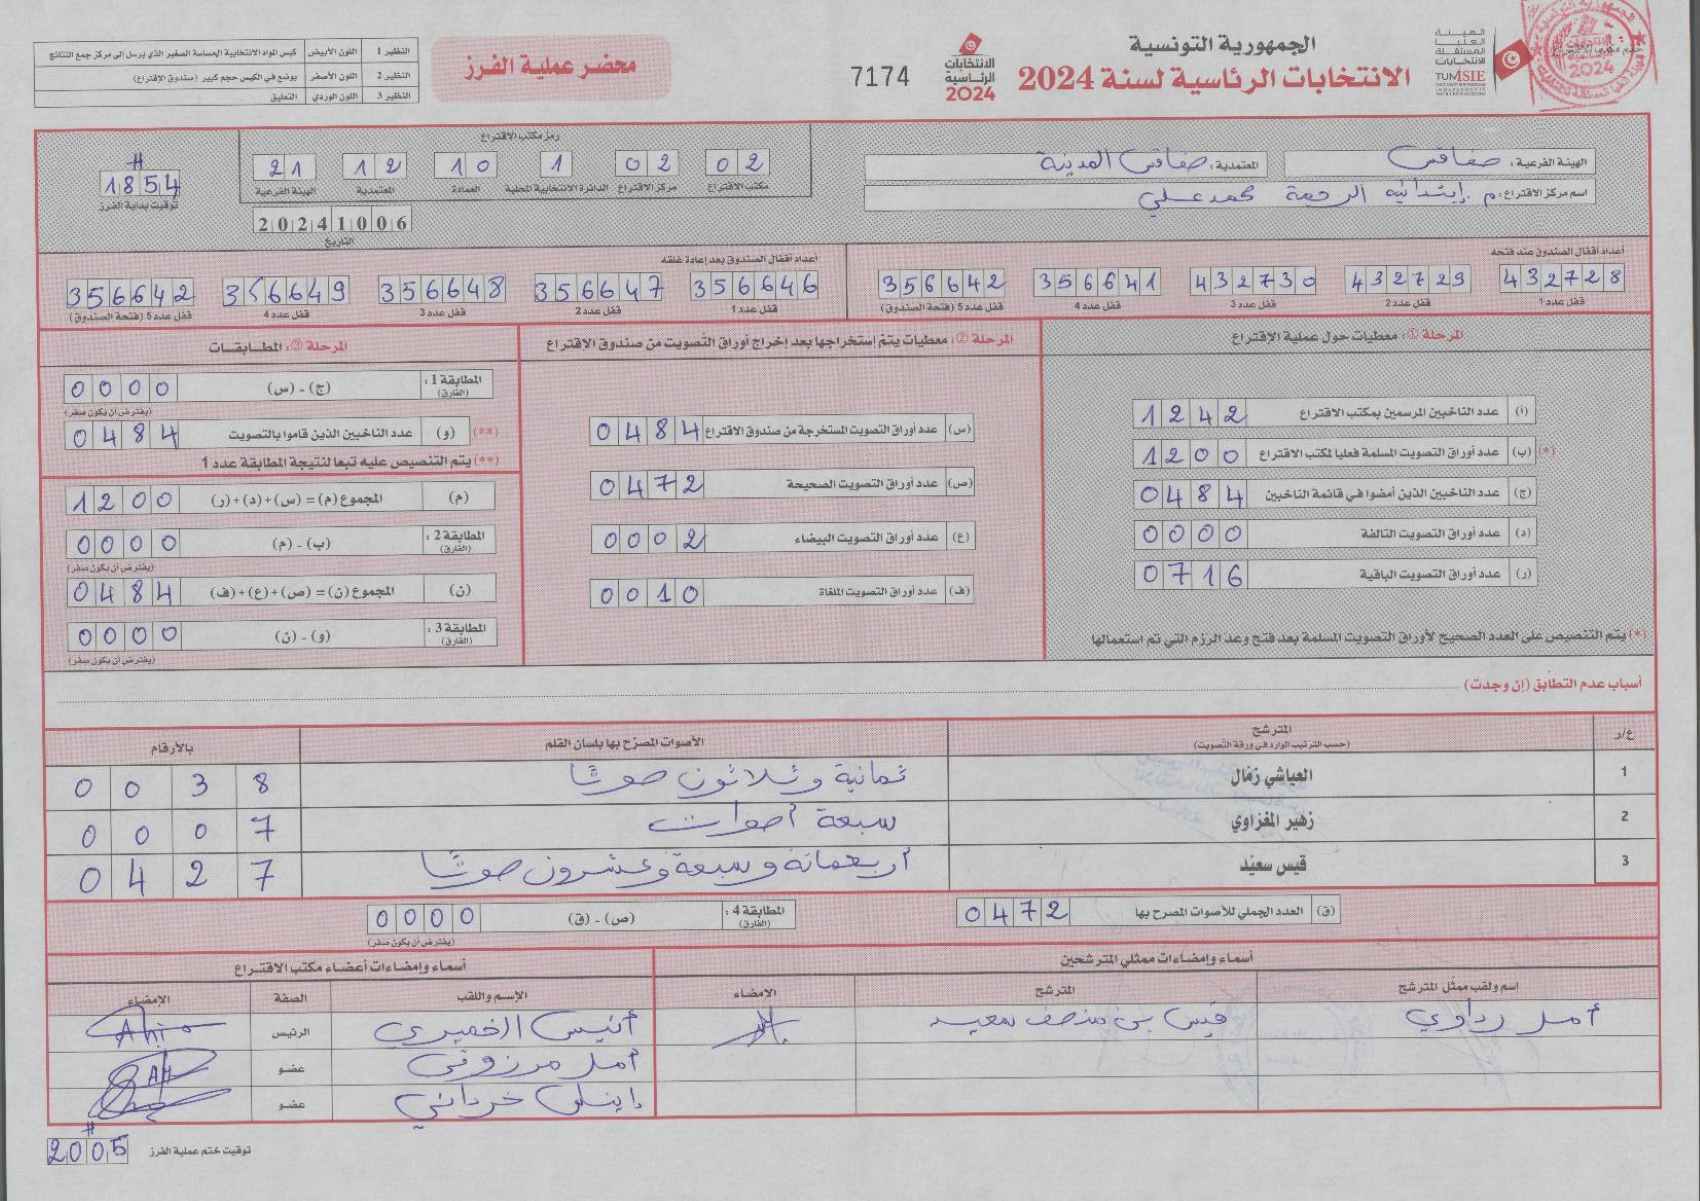 الجمهورية التونسية
الانتخابات الرئاسية لسنة 2024
الهيئة
العليا
المستقلة
للانتخابات
TUNISIE
الانتخابات
الرئاسية
2024
7174
محضر عملية الفرز
النظير 1 اللون الأبيض كيس المواد الانتخابية الحساسة الصغير الذي يرسل إلى مركز جمع النتائج
النظير 2 اللون الأصفر يوضع في الكيس حجم كبير (صندوق الاقتراع)
النظير 3 اللون الوردي التعليق
الهيئة الفرعية: صفاقس المعتمدية: صفاقس المدينة
اسم مركز الاقتراع: م. إبتدائية الرحمة محمد علي
رمز مكتب الاقتراع
02 مكتب الاقتراع
02 مركز الاقتراع
1 الدائرة الانتخابية المحلية
10 العمادة
12 المعتمدية
21 الهيئة الفرعية
20241006
التاريخ
H
1854
توقيت بداية الفرز
أعداد أقفال الصندوق عند فتحه
432728 432729 432730 356641 356642
قفل عدد 1 قفل عدد 2 قفل عدد 3 قفل عدد 4 قفل عدد 5 (فتحة الصندوق)
أعداد أقفال الصندوق بعد إعادة غلقه
356646 356647 356648 356649 356642
قفل عدد 1 قفل عدد 2 قفل عدد 3 قفل عدد 4 قفل عدد 5 (فتحة الصندوق)
المرحلة ①: معطيات حول عملية الاقتراع
(أ) عدد الناخبين المرسمين بمكتب الاقتراع 1242
(*) (ب) عدد أوراق التصويت المسلمة فعليا لمكتب الاقتراع 1200
(ج) عدد الناخبين الذين أمضوا في قائمة الناخبين 0484
(د) عدد أوراق التصويت التالفة 0000
(ر) عدد أوراق التصويت الباقية 0716
(*) يتم التنصيص على العدد الصحيح لأوراق التصويت المسلمة بعد فتح وعد الرزم التي تم استعمالها
المرحلة ②: معطيات يتم إستخراجها بعد إخراج أوراق التصويت من صندوق الاقتراع
(س) عدد أوراق التصويت المستخرجة من صندوق الاقتراع 0484
(ص) عدد أوراق التصويت الصحيحة 0472
(ع) عدد أوراق التصويت البيضاء 0002
(ف) عدد أوراق التصويت الملغاة 0010
المرحلة ③: المطابقات
المطابقة 1: (الفارق) (ج) - (س) 0000
(يفترض أن يكون صفر)
(**) (و) عدد الناخبين الذين قاموا بالتصويت 0484
(**) يتم التنصيص عليه تبعا لنتيجة المطابقة عدد 1
(م) المجموع (م) = (س)+(د)+(ر) 1200
المطابقة 2: (الفارق) (ب) - (م) 0000
(يفترض أن يكون صفر)
(ن) المجموع (ن) = (ص)+(ع)+(ف) 0484
المطابقة 3: (الفارق) (و) - (ن) 0000
(يفترض أن يكون صفر)
أسباب عدم التطابق (إن وجدت)
ع/ر المترشح الأصوات المصرّح بها بلسان القلم بالأرقام
(حسب الترتيب الوارد في ورقة التصويت)
1 العياشي زمّال ثمانية وثلاثون صوتًا 0038
2 زهير المغزاوي سبعة أصوات 0007
3 قيس سعيّد أربعمائة وسبعة وعشرون صوتًا 0427
(ق) العدد الجملي للأصوات المصرح بها 0472
المطابقة 4: (الفارق) (ص) - (ق) 0000
(يفترض أن يكون صفر)
أسماء وإمضاءات ممثلي المترشحين
اسم ولقب ممثّل المترشح المترشح الإمضاء
أمل رداوي قيس بن منصف سعيد
أسماء وإمضاءات أعضاء مكتب الاقتراع
الإسم واللقب الصفة الإمضاء
أنيس الخميري الرئيس
أمل مرزوقي عضو
عضو
H
2005 توقيت ختم عملية الفرز